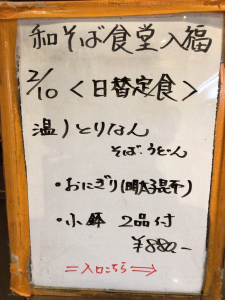 和そば食堂入福
2/10 <日替定食>
温)とりなん
そば・うどん
・おにぎり(明太子昆布)
・小鉢 2品付
¥880-
=入口こちら⇒